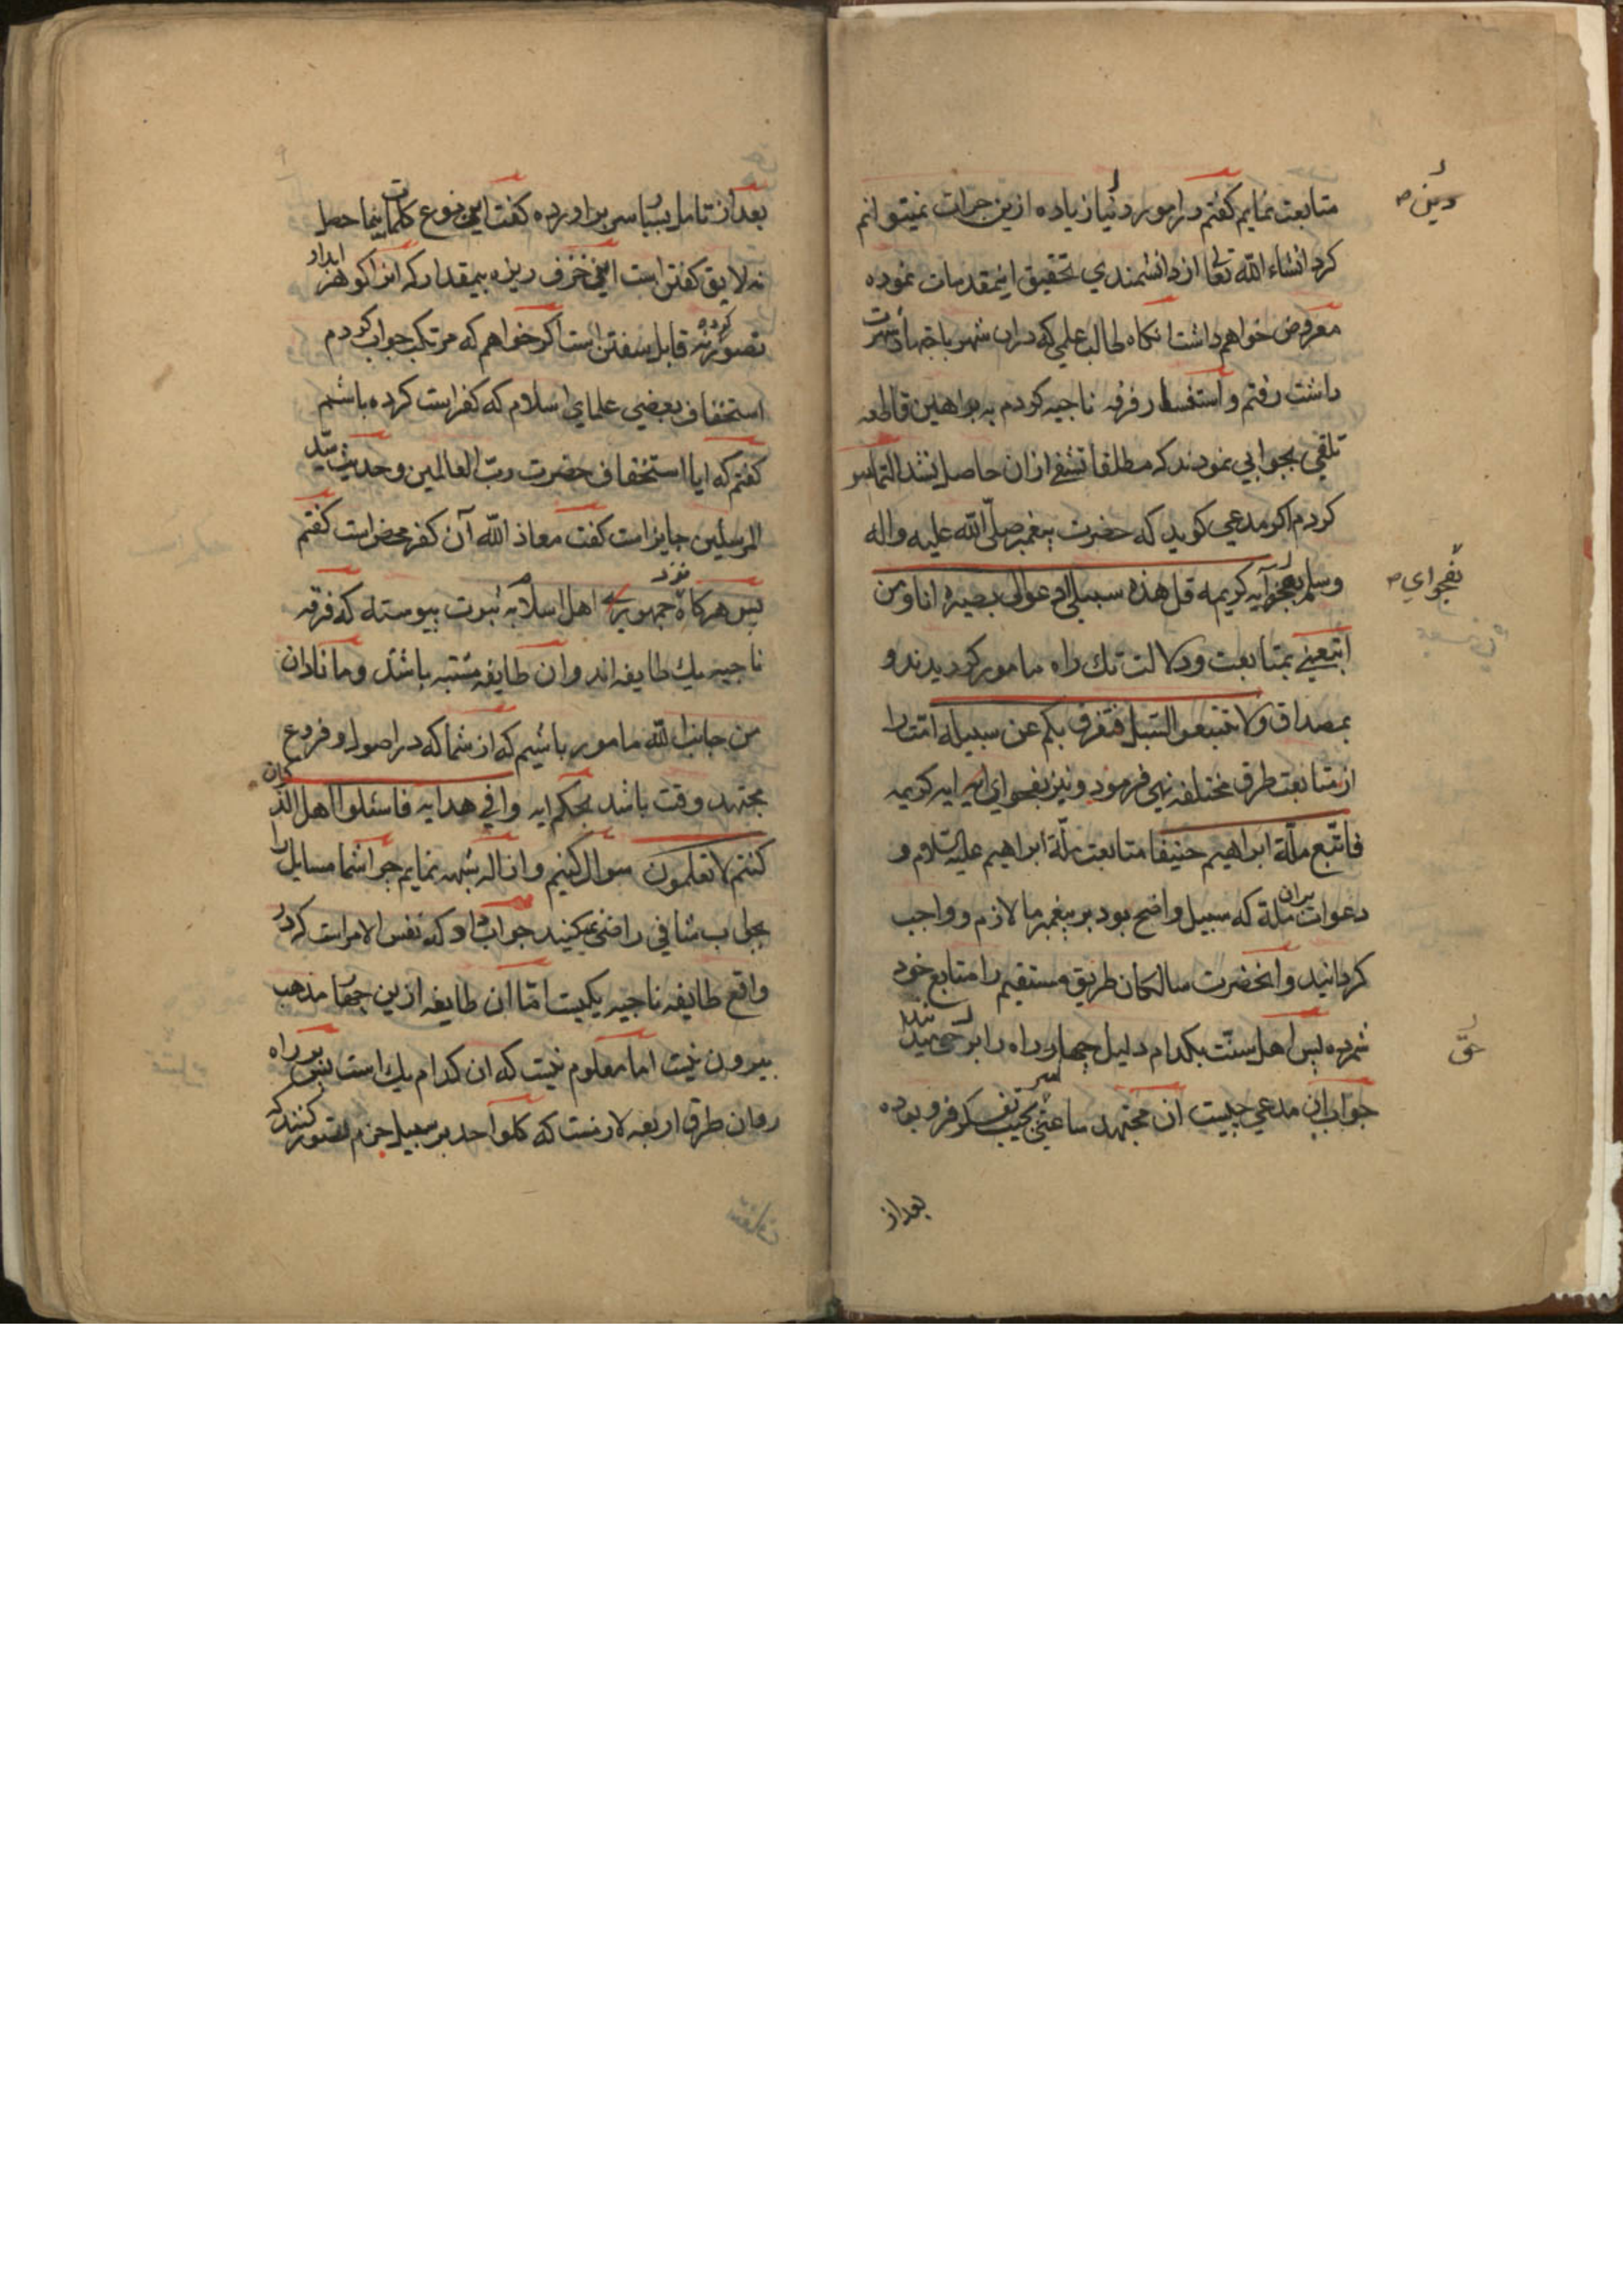 متابعت نمایم کفتم در امور دنیا زیاده ازین جرات نمیتوانم
کرد انشاء الله تعالی از دانشمندی تحقیق اینمقدمات نموده
معروض خواهم داشت انکاه طالب علمی که دران شهر باجتهاد شهرت
داشت رفتم و استفسار فرقه ناجیه کردم به براهین قاطعه
تلقی بجوابی نمودند که مطلقا تشفی ازان حاصل نشد التماس
کردم اکر مدعی کوید که حضرت پیغمبر صلّی الله علیه واله
وسلم بفحوای آیه کریمه قل هذه سبیلی ادعوالی بصیرة انا ومن
اتبعنی بمتابعت ودلالت یك راه مامور کردیدند و
بمصداق ولا تتبعوا السّبل فتفرق بکم عن سبیله امّت را
از متابعت طرق مختلفه نهی فرمود و نیز بفحوای این ایه کریمه
فاتّبع ملّة ابراهیم حنیفا متابعت ملّة ابراهیم علیه السّلام و
دعوات بران ملّة که سبیل واضح بود بر پیغمبر ما لازم و واجب
کردانید وانحضرت سالکان طریق مستقیم را متابع خود
شمرده پس اهل سنّت بکدام دلیل چهار راه را بر حق
جواب این مدعی چیست ان مجتهد ساعتی بجیب تفکر فرو بوده
دین
بفحوای
حق
بعداز
بعداز تامل بسیار سر براورده کفت این نوع کلمات
نه لایق کفتن است این خزف ریزه بیمقدار که انرا کوهر ابدار
تصور کرده نه قابل سفتن است اکر خواهم که مرتکب جواب کردم
استخفاف بعضی علمای اسلام که کفراست کرده باشم
کفتم که ایا استخفاف حضرت ربّ العالمین وحدیث سیّد
المرسلین جایز است کفت معاذ الله آن کفر محض است کفتم
پس هرکاه نزد جمهور اهل اسلام به ثبوت پیوسته که فرقه
ناجیه یك طایفه اند وان طایفه مشتبه باشد وما نادان
من جانب الله مامور باشیم که از شما که در اصول و فروع
مجتهد وقت باشد بحکم ایه وافی هدایه فاسئلوا اهل الذکران
کنتم لا تعلمون سوال کنیم وازاله شبهه نمایم چرا شما مسایل را
بجواب شافی راضی نمیکنید جواب داد که نفس الامر است که در
واقع طایفه ناجیه یکیست امّا ان طایفه ازین چهار مذهب
بیرون نیست اما معلوم نیست که ان کدام یك است پس بر راه
روان طرق اربعه لازمست که کلواحد بر سبیل جزم تصور کنند که